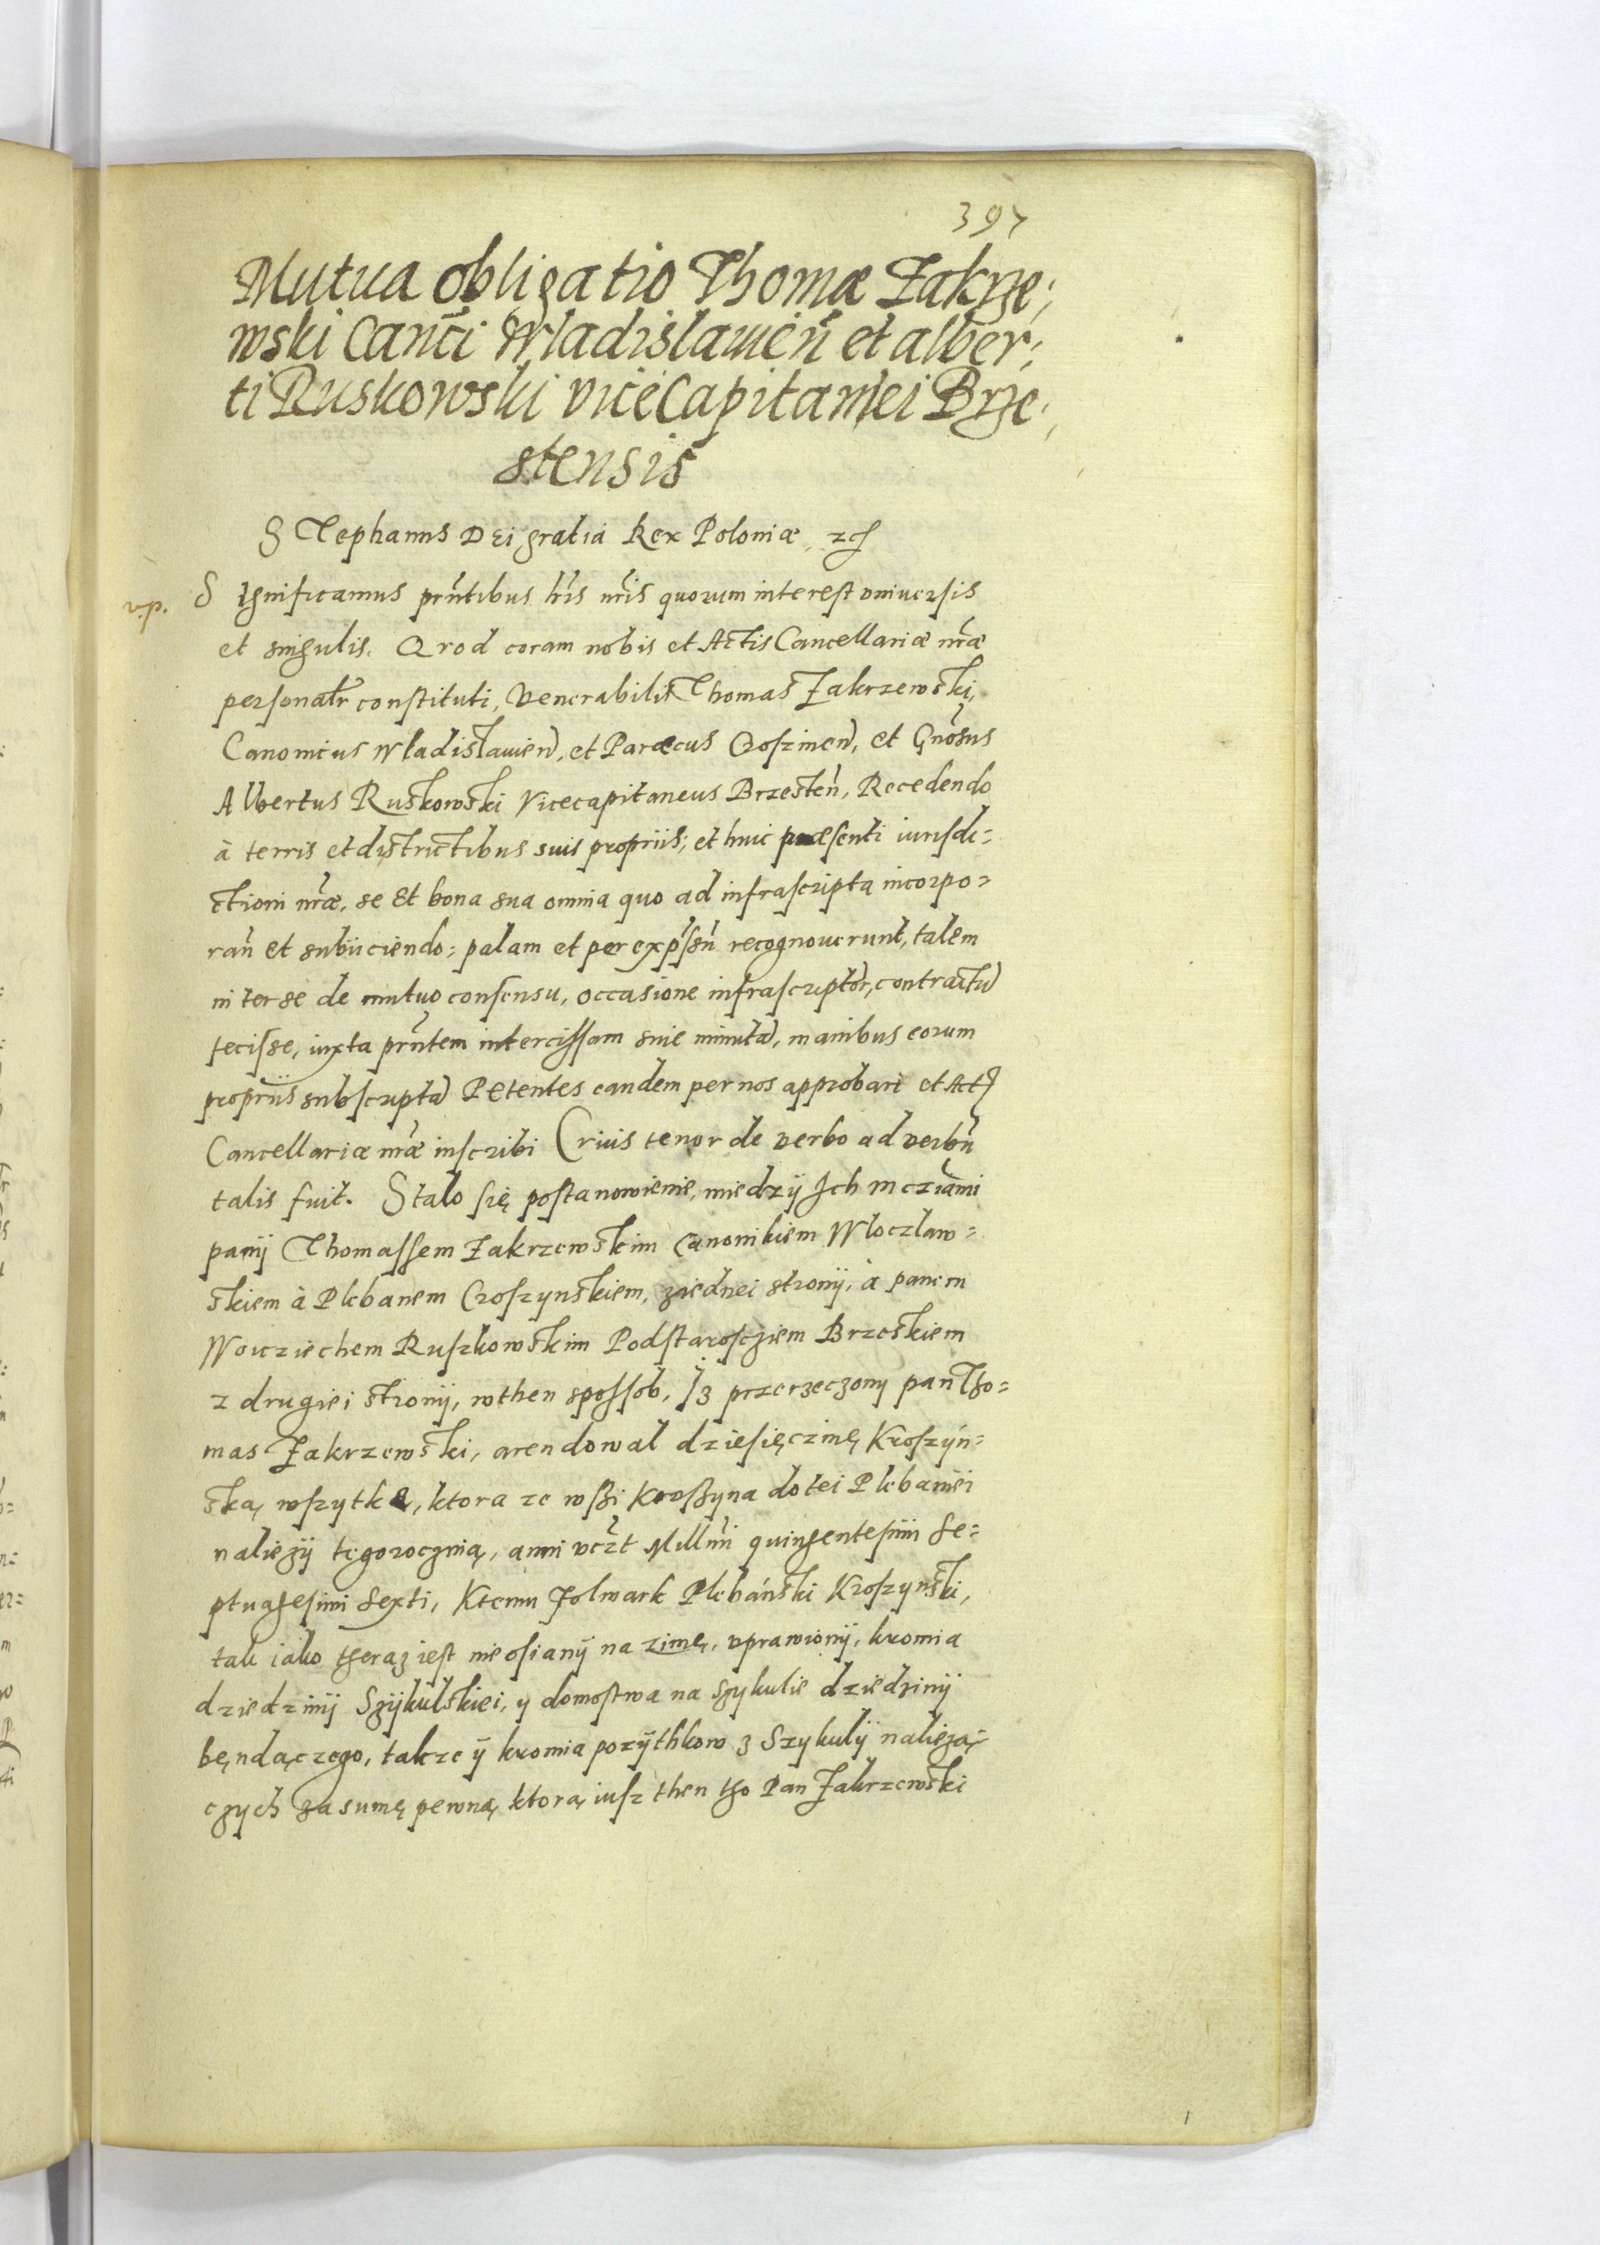 397
Mutua obligatio Thomæ Zakrze,
wski Canci Wladislauien et alber,
ti Ruskowski viceCapitanei Brze,
stensis
STephanus DEi gratia Rex Poloniæ, zc
v.p. SIgnificamus prntibus lris nris quorum interest vniuersis
et singulis. Quod coram nobis et Actis Cancellariæ nræ
personalr constituti, Venerabilis Thomas Zakrzewski,
Canonicus Wladislauien, et Paræcus Croszinen, et Gnosus
Albertus Ruskowski Vicecapitaneus Brzesten, Recedendo
à terris et districtibus suis propriis, et huic præsenti iurisdi=
ctioni nræ, se et bona sua omnia quo ad infrascripta incorpo=
ran et subiiciendo: palam et per expssu recognouerunt, talem
inter se de mutuo consensu, occasione infrascriptor, contractu
fecisse, iuxta prntem intercissam siue minuta, manibus eorum
propriis subscripta Petentes eandem per nos approbari et Act
Cancellariæ nræ inscribi Cuius tenor de verbo ad verbu
talis fuit. Stalo się postanowienie, miedzÿ Ich mcziami
panÿ Thomassem Zakrzewskim Canonikiem Wloczlaw=
skiem à Plebanem Croszynskiem, ziednei stronÿ, à panem
Woiciechem Ruszkowskim Podstarosciem Brzeskiem
z drugiei stronÿ, wthen spossob, Iz przerzeczony pan Tho=
mas Zakrzewski, arendowal dziesięczinę Kroszyń=
ską wszytkę, ktora ze wssi Krossyna do tei Plebaniei
nalieżÿ tegorocznią, anni vt Millmi quingentesimi Se=
ptuagesimi Sexti, Ktemu folwark Plebański Kroszynski,
tak iako theraz iest nie osianÿ na zimę, vprawionÿ, kromia
dziedzinÿ Szÿkulskiei, y domostwa na Szykulie dziedzinÿ
bęndączego, takze ÿ kromia pozÿthkow z Szykulÿ nalieżą=
czych za sumę pewną, ktorą iusz then tho Pan Zakrzewski